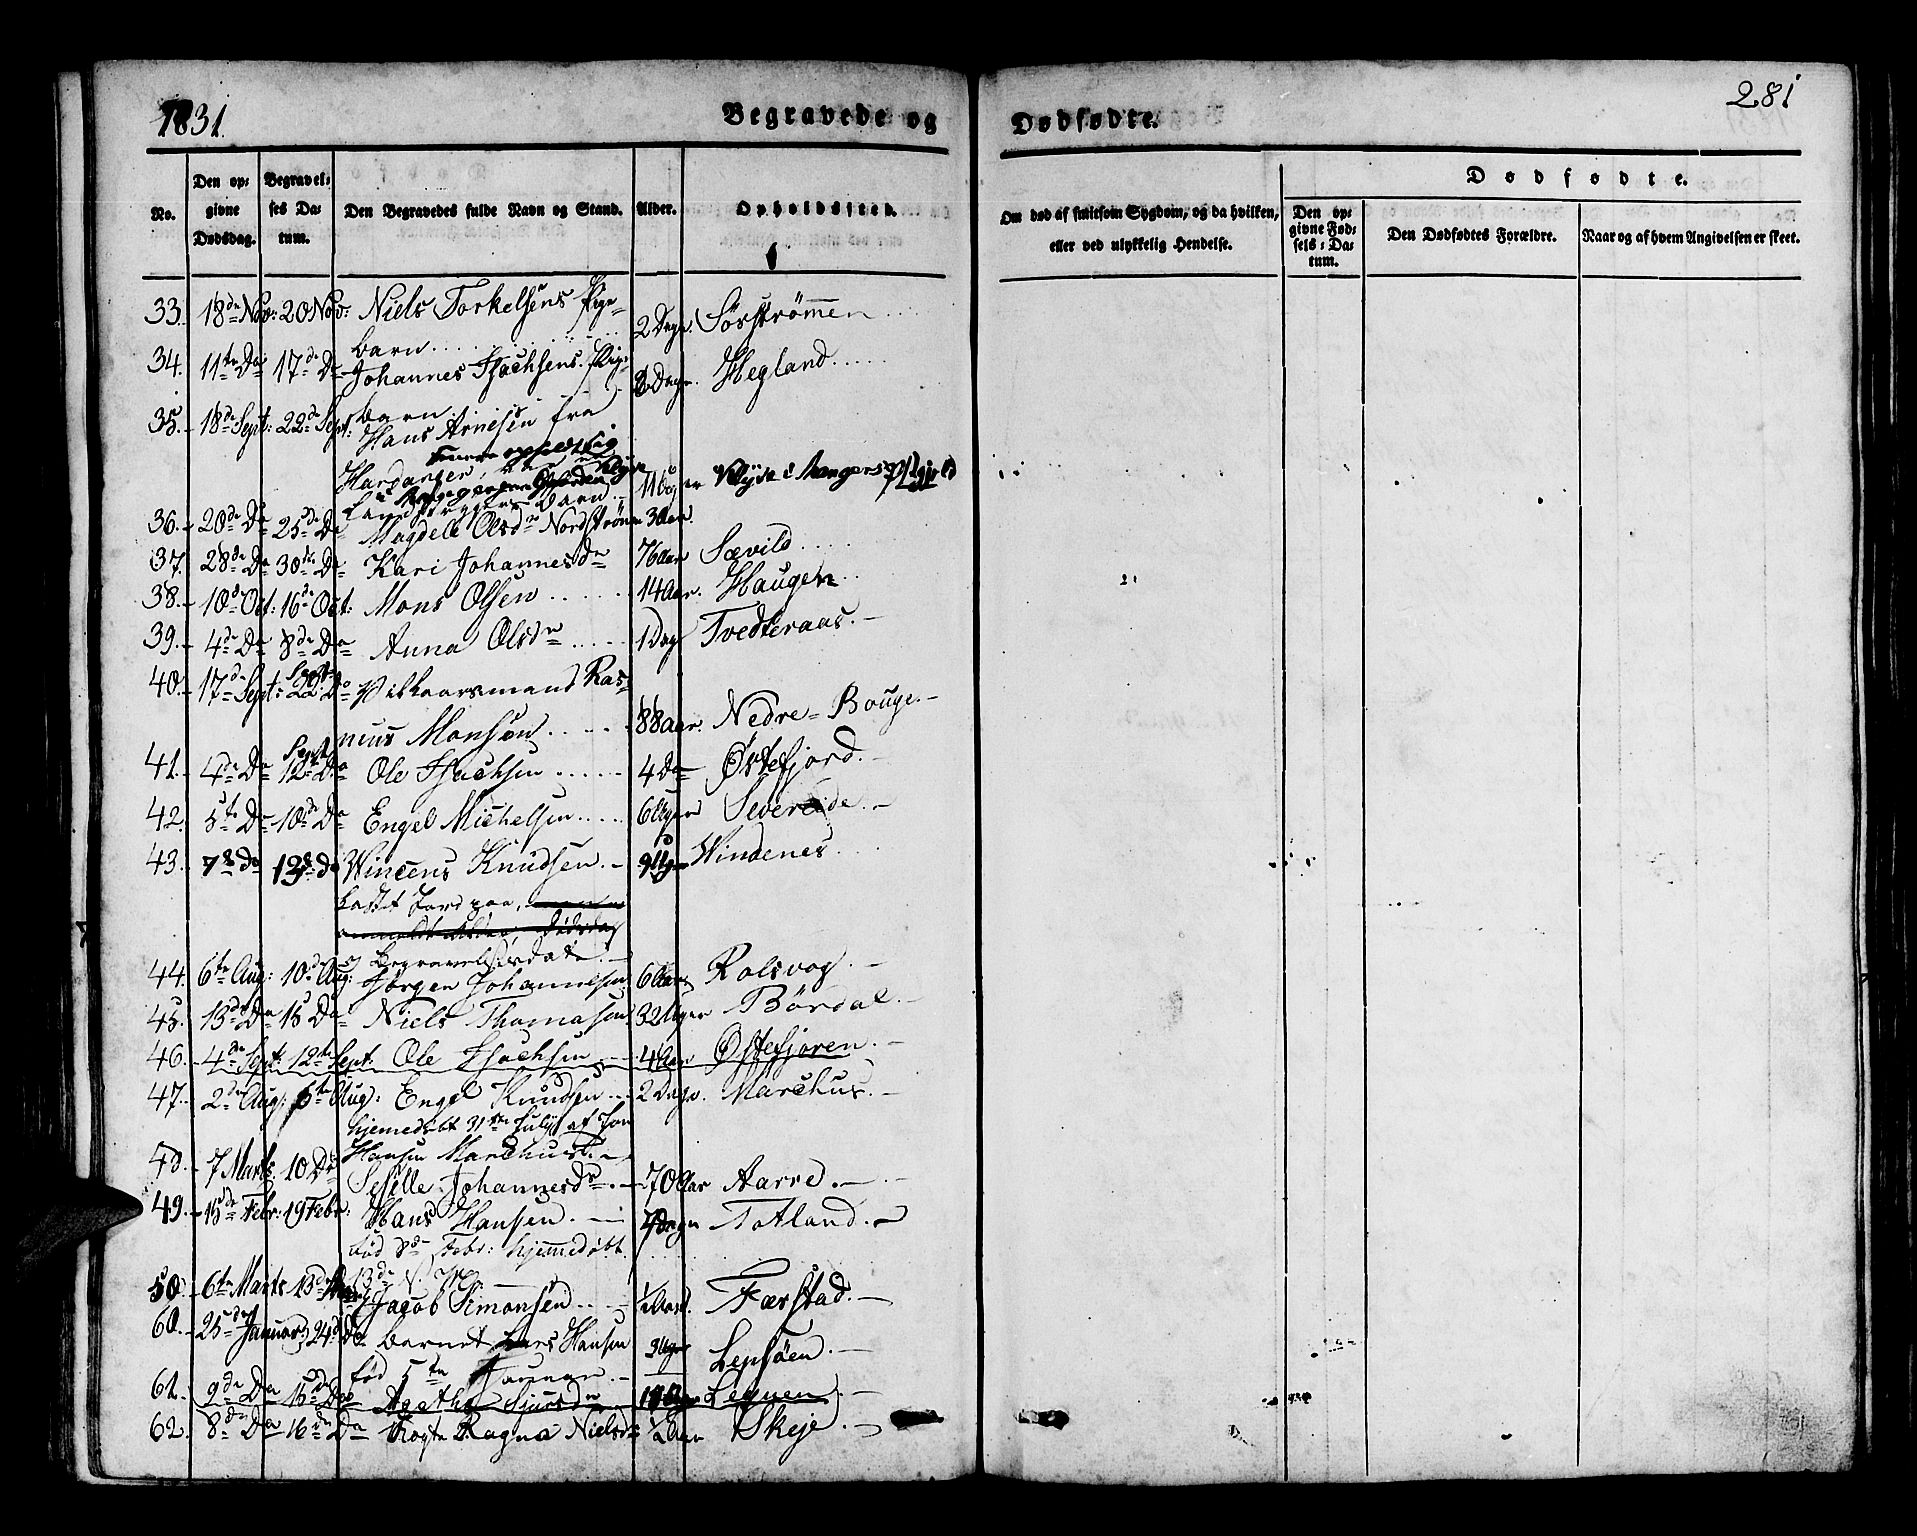 1831.
Begravede og
Dødfødte.
281
No.
Den op-
givne
Dødsdag.
Begravel-
ses Da-
tum.
Den Begravedes fulde Navn og Stand.
Alder.
Opholdssted.
Om død af smitsom Sygdom, og da hvilken,
eller ved ulykkelig Hendelse.
Dødfødte.
Den op-
givne Fød-
sels-Da-
tum.
Den Dødfødtes Forældre.
Naar og af hvem Angivelsen er skeet.
33. 18de Nov: 20 Nov: Niels Torkelsens Pige-
barn 2 Dage. Sörströmmen
34. 11te Do 17de Do Johannes Isachsens Pige-
barn Dage. Hegland
35. 18de Sept: 22de Sept: Hans Arnesen fra
Hardanger
Barn 11 Uger i Mangers Pstgjeld
36. 20de Do 25de Do Magdele Olsdr Nordströmen 3 Aar.
37. 28de Do 30te Do Kari Johannesdr 76 Aar Sævild
38. 10de Oct: 16de Oct: Mons Olsen 14 Aar. Haugen
39. 4de Do 8de Do Anna Olsdr 1 Dag Tvedteraas.
40. 17de Sept: 22de Sept Do Vilkaarsmand Ras-
mus Monsen 88 Aar. Nedre-Bouge.
41. 4de Do 12te Sept Do Ole Isachsen 4 Do Østefjord.
42. 5te Do 10de Do Engel Michelsen 6 Uger Severeide.
43. 7de Do 13de Do Wincens Knudsen 9 Uger Windenes
kastet Jord paa,
Dødsdag
Begravelsesdato.
44. 6te Aug: 10de Aug: Jørgen Johannesen 6 Aar Rolsvog.
45. 13de Do 15 Do Niels Thomasen 32 Uger Bördal.
46. 4de Sept: 12te Sept: Ole Isachsen 4 Aar Østefjoren.
47. 2de Aug: 6te Aug: Engel Knudsen 2 Dage. Marchus.
hjemedøbt 31te July af Jon
Hansen Marchus.
48. 7 Marts 10 Do Sesselle Johannesdr. 70 Aar Aarre.
49. 15de Febr: 19 Febr: Hans Hansen. 7 Dage Totland.
fød 8de Febr: hjemmedøbt
13de
50. 6te Marts 13de Marts Jacob Simonsen ½ Aar. Færstad.
60. 25de Januar 24de Do Barnet Lars Hansen 3 Uger Lepsöen.
fød 5te Januar.
61. 9de Do 16de Do Agethe Siursdr Legnen.
62. 8de Do 16de Do Ragna Nielsdr ½ Aar Skeje.